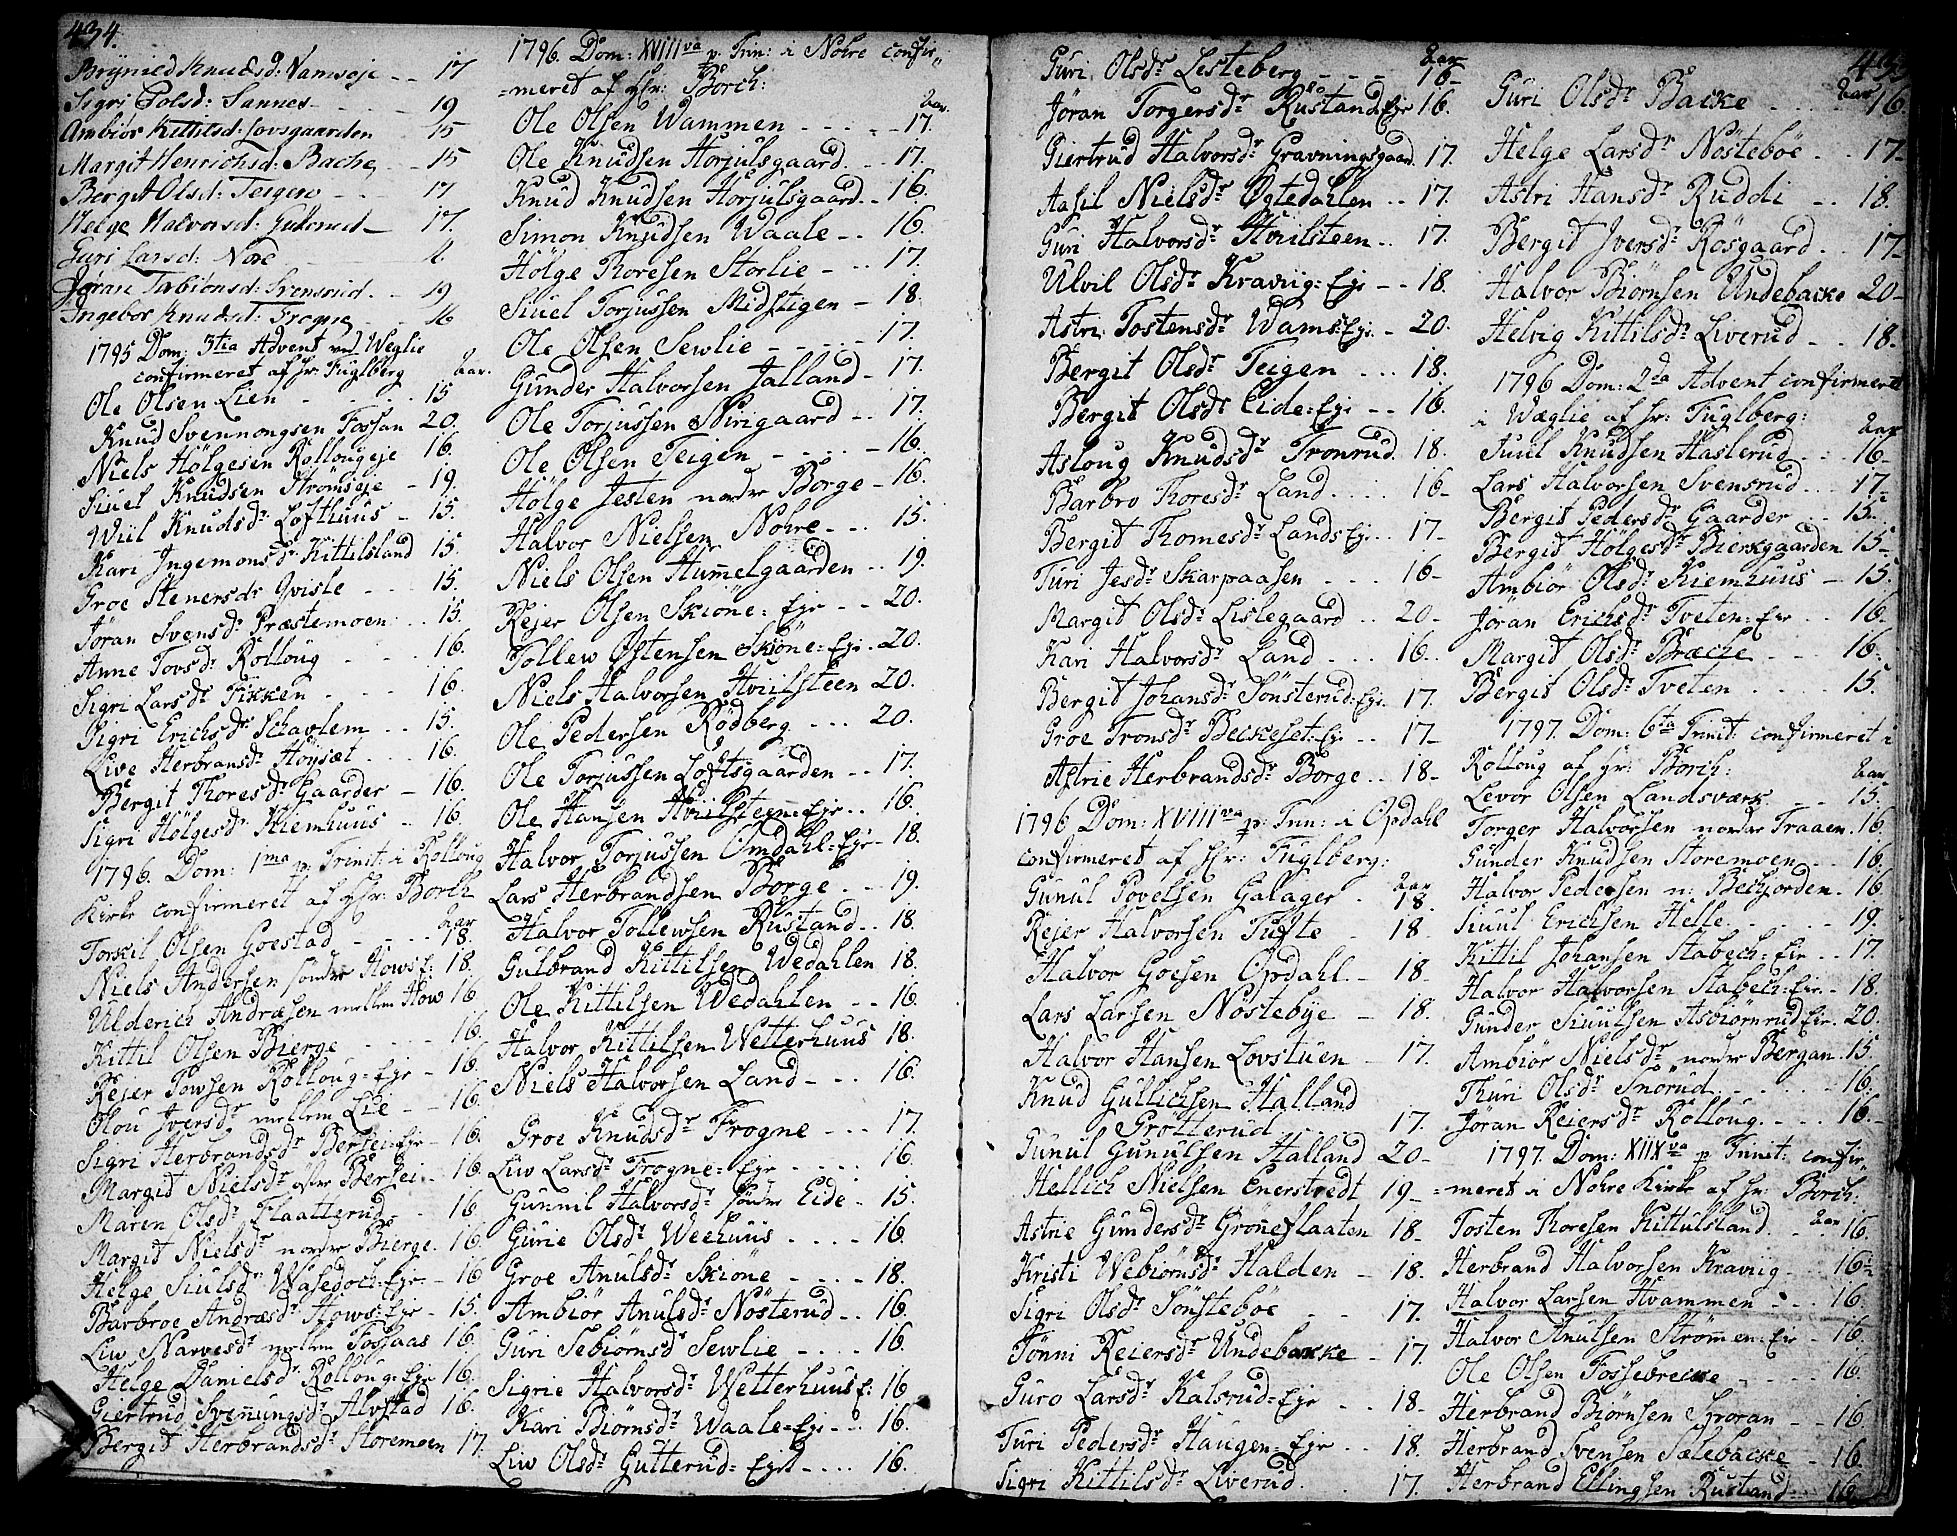 434.
Brynild Knudsd: Vamseje - - 17
Sigri Colsd: Sannes - - - 19
Ambiør Kittilsd: Lovsgaarden 15
Margit Henrichsd: Bache - - 15
Bergit Olsd: Teigen - - 17
Helge Halvorsd: - 17.
Guri Larsd: Nore
Jøran Tabiønsd: Svensrud. - 19
Ingebor Knudsd: Frogne 16
1795 Dom: 3tia Advent ved Weglie
confirmeret af hr: Fuglberg aar.
Ole Olsen Lien - - - - 15
Knud Svennongsen Fossan 20.
Niels Hölgesen Rollougeje 16.
Siuel Knudsen Strömseje - 19.
Wiil Knudsdr Lofthuus - 15.
Kari Ingemonsdr Kittilsland 15.
Groe Stenersdr Qvisle - - - 15.
Jöran Svensdr Præstemoen - - 15.
Anne Tovsdr Rolloug - - - 16.
Sigri Larsdr Fikken - - - 16.
Sigri Erichsdr Schavlem - - 15.
Live Herbransdr Höysæt - - - 16.
Bergit Thoresdr Gaarder - 16.
Sigri Hölgesdr Kiemhuus - - 16.
1796. Dom: 1ma p. Trinit: i Rolloug
Kirke confirmeret af Hr: Borch
aar
Torkil Olsen Goestad - - - 18.
Niels Andersen söndre Hows E: 18.
Ulderich Andræsen mellem How 16.
Kittil Olsen Bierge - - - - 16.
Rejer Towsen Rolloug=Eje - 16.
Olou Iversdr mellem Lie - - 16.
Sigri Herbrandsdr Bersei=Eje - 16.
Margit Nielsdr öfre Bersei - 16.
Maren Olsdr Flaatterud - - 16
Margit Nielsdr nordre Bierge. 16.
Helge Siulsdr Wasedoch=Eje - 16
Barbroe Andræsdr Hows=Eje - 15.
Liw Narvesdr mellem Fossaas 16.
Helge Danielsdr Rolloug=Eje 16.
Giertrud Svenungsdr Alvstad 16.
Bergit Herbrandsdr Storemoen 17.
1796. Dom: XVIIIva p. Trin: i Nohre confir„
=meret af Hr: Borch: aar.
Ole Olsen Wammen - - - - - 17.
Ole Knudsen Horjulsgaard. - - 17.
Knud Knudsen Horjulsgaard - - 16.
Simon Knudsen Waale - - 16.
Hölge Thoresen Storlie - - - 17.
Siuel Torjussen Midstigen - 18.
Ole Olsen Sewlie - - - - - 17.
Gunder Halvorsen Jalland - 17.
Ole Torjussen Nirigaard - - 17.
Ole Olsen Teigen - - - - - 16.
Hölge Jesten nordre Borge - 16.
Halvor Nielsen Nohre - - - 15.
Niels Olsen Hummelgaarden - - 19.
Rejer Olsen Skiöne=Eje - - 20.
Tollew Östensen Skiöne=Eje - 20.
Niels Halvorsen Hviilsteen 20.
Ole Pedersen Rödberg - - - 20.
Ole Torjussen Loftsgaarden - - 17.
Ole Hansen Hviilsteen=Eje - - 16.
Halvor Torjussen Omdahl=Eje - 18.
Lars Herbrandsen Borge - - - 19.
Halvor Tollewsen Rustand - - 18.
Gulbrand Kittilsen Wedahlen 18.
Ole Kittilsen Wedahlen - - 16.
Halvor Kittilsen Wetterhuus 18.
Niels Halvorsen Land - - - 16.
Groe Knudsdr Frogne - - - 17.
Liw Larsdr Frogne=Eje - - - - 16.
Gunnil Halvorsdr söndre Eide - 15.
Gurie Olsdr Weehuus - - - - 16.
Groe Anulsdr Skiöne - - - - 18.
Ambiör Anulsdr Nösterud - - 16.
Guri Sebiörnsd Sewlie - - - - 16.
Sigrie Halvorsdr Wetterhuus E: 16
Kari Biörnsdr Waale=Eje - - - 16.
Liw Olsdr Gutterud=Eje - - - - 16.
aar
Guri Olsdr Lesteberg - - - - 16-
Jöran Torgersdr Rustand=Eje 16.
Giertrud Halvorsdr Gravningsgaard. 17.
Aasil Nielsdr Ögtedahlen - - 17.
Guri Halvorsdr Hviilsteen - - 17.
Ulvil Olsdr Kraviig=Eje - - 18.
Astri Tostensdr Wams=Eje - 20.
Bergit Olsdr Teigen - - - 18.
Bergit Olsdr Eide=Eje - - 16.
Asloug Knudsdr Tronrud 18.
Barbro Thoresdr Land - - - - 16-
Bergit Thomesdr Lands Eje - - 17-
Turi Jesdr Skarpaasen - - - - 16-
Margit Olsdr Lislegaard - - 20-
Kari Halvorsdr Land - - - 16.
Bergit Johansdr Sönsterud=Eje. 17.
Groe Tronsdr Beckeset=Eje - - 17-
Astrie Herbrandsdr Borge - - 18-
1796 Dom: XVIIIva p: Trin: i Opdahl
confirmeret af Hr: Fuglberg:
aar
Gunul Povelsen Galager - 18.
Rejer Halvorsen Tufte - 18.
Halvor Goesen Opdahl - 18.
Lars Larsen Nöstebye - 18.
Halvor Hansen Lovstuen - 17.
Knud Gullichsen Halland
Grotterud - - - 17.
Gunul Gunulsen Halland 20-
Hellich Nielsen Enerstvedt 19-
Astrie Gundersdr Grönneflaaten 18-
Kristi Webiörnsdr Halden - 18.
Sigri Olsdr Sönsteböe - - 17.
Tönni Reiersdr Undebakke - 17.
Guro Larsdr Kalsrud=Eje - - 18-
Turi Pedersdr Haugen=Eje - - 18.
Sigri Kittilsdr Liverud. - - 17.
435
aar
Guri Olsdr Backe - - - - 16
Helge Larsdr Nösteböe - - 17-
Astri Hansdr Ruddi - - 18.
Bergit Iversdr Rosgaard - - 17-
Halvor Biörnsen Undebacke 20-
Helvig Kittilsdr Liverud - - 18.
1796 Dom: 2da Advent confirmeret
i Wæglie af hr: Fuglberg: aar
Juul Knudsen Haslerud - - - 16-
Lars Halvorsen Svensrud - - - 17-
Bergit Pedersdr Gaarder - - 15.
Bergit Hölgesdr Bierkgaarden 15-
Ambiör Olsdr Kiemhuus - 15.
Jöran Erichsdr Tveten=Eje - - 16-
Margit Olsdr Bræche - - - 16.
Bergit Olsdr Tveten - - - - 15.
1797. Dom: 6ta Trinit: confirmeret i
Rolloug af Hr: Borch: aar
Levor Olsen Landsværk - - 15.
Torger Halvorsen nordre Traaen. 16.
Gunder Knudsen Storemoen - - 16.
Halvor Pedersen n: Bechjorden - 16
Siuul Erichsen Helle - - - - - 19.
Kittil Johansen Stabech=Eie - - 17.
Halvor Halvorsen Stabech=Eie - 18.
Gunder Siuulsen Asbiörnrud Eje. 20.
Ambiör Nielsdr nordre Bergan. 15.
Thuri Olsdr Snörud - - - - 16.
Jöran Reiersdr Rolloug - - - - 16.
1797. Dom: XIIXva p Trinit: confir„
=meret i Nohre Kirke af hr: Borch:
aar
Tosten Thoresen Kittulsland. - - 16.
Herbrand Halvorsen Kraviig - - 16-
Halvor Larsen Hvammen - - - 16.
Halvor Anulsen Strömmen=Eie - 16.
Ole Olsen Fossebrekke - - - - 16.
Herbrand Biörnsen Sporan - - 16
Herbrand Svensen Sælebacke - 16-
Herbrand Ellingsen Rustand - 16.